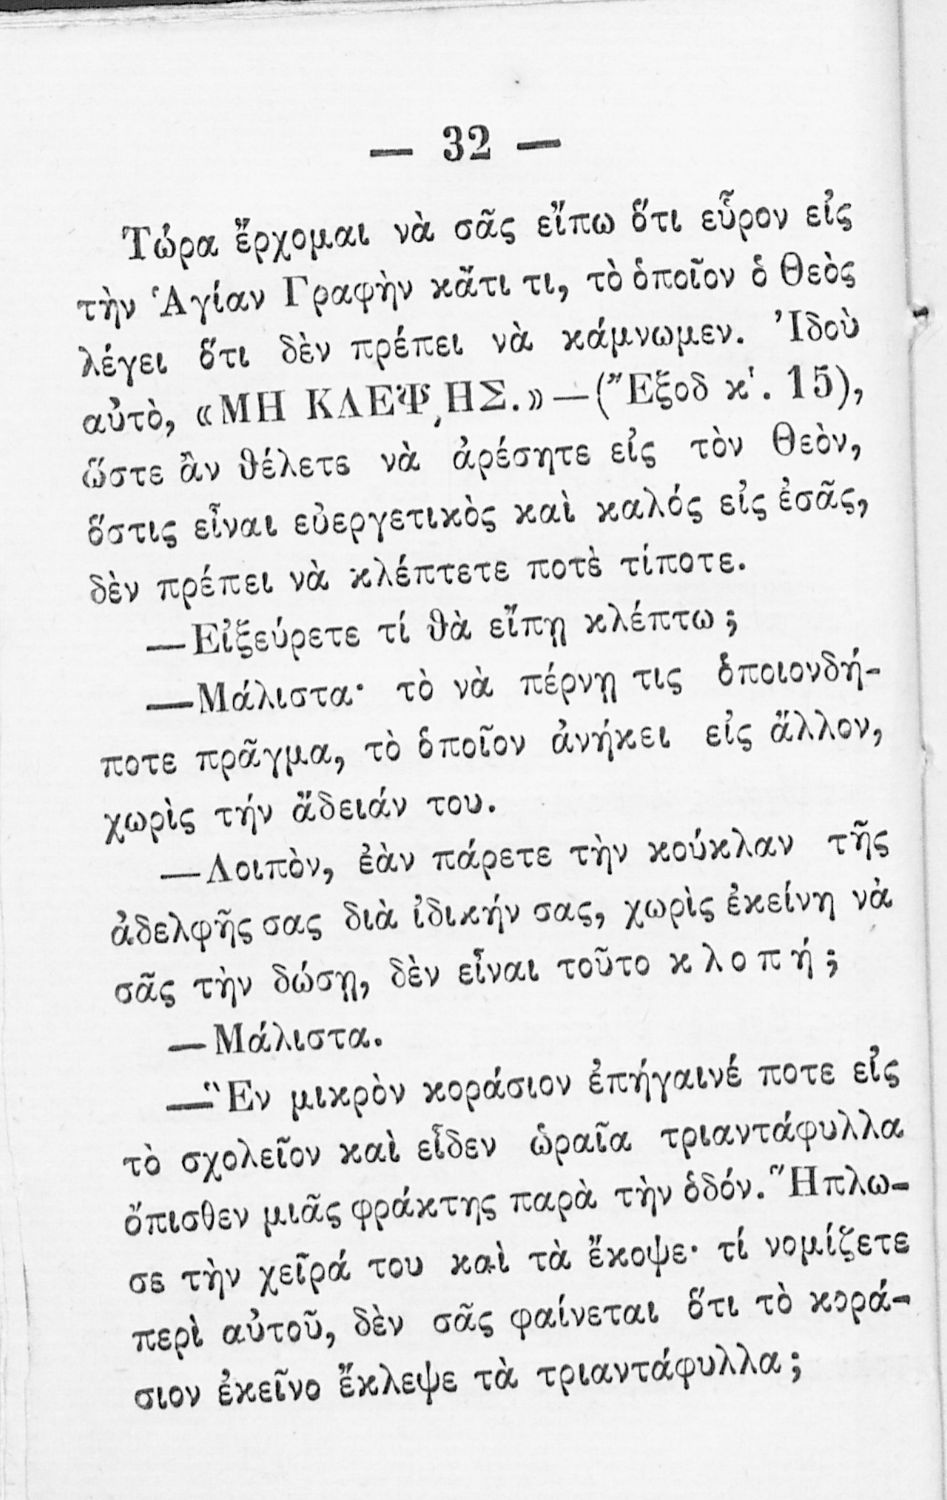 — 32 —
Τώρα ἔρχομαι νὰ σᾶς εἴπω ὅτι εὗρον εἰς
τὴν Ἁγίαν Γραφὴν κἄτι τι, τὸ ὁποῖον ὁ Θεὸς
λέγει ὅτι δὲν πρέπει νὰ κάμνωμεν. Ἰδοὺ
αὐτὸ, «ΜΗ ΚΛΕΨͅΗΣ.» — (Ἔξοδ κʹ. 15),
ὥστε ἂν θέλετε νὰ ἀρέσητε εἰς τὸν Θεὸν,
ὅστις εἶναι εὐεργετικὸς καὶ καλός εἰς ἐσᾶς,
δὲν πρέπει νὰ κλέπτετε ποτὲ τίποτε.
—Εἰξεύρετε τί θὰ εἴπῃ κλέπτω;
—Μάλιστα· τὸ νὰ πέρνῃ τις ὁποιονδή-
ποτε πρᾶγμα, τὸ ὁποῖον ἀνήκει εἰς ἄλλον,
χωρὶς τήν ἄδειάν του.
—Λοιπὸν, ἐὰν πάρετε τὴν κούκλαν τῆς
ἀδελφῆς σας διὰ ἰδικήν σας, χωρὶς ἐκείνη νὰ
σᾶς τὴν δώσῃ, δὲν εἶναι τοῦτο κ λ ο π ή;
—Μάλιστα.
—Ἓν μικρὸν κοράσιον ἐπήγαινέ ποτε εἰς
τὸ σχολεῖον καὶ εἶδεν ὡραῖα τριαντάφυλλα
ὄπισθεν μιᾶς φράκτης παρὰ τὴν ὁδόν. Ἥπλω-
σε τὴν χεῖρά του καὶ τὰ ἔκοψε· τί νομίζετε
περὶ αὐτοῦ, δὲν σᾶς φαίνεται ὅτι τὸ κορά-
σιον ἐκεῖνο ἔκλεψε τὰ τριαντάφυλλα;